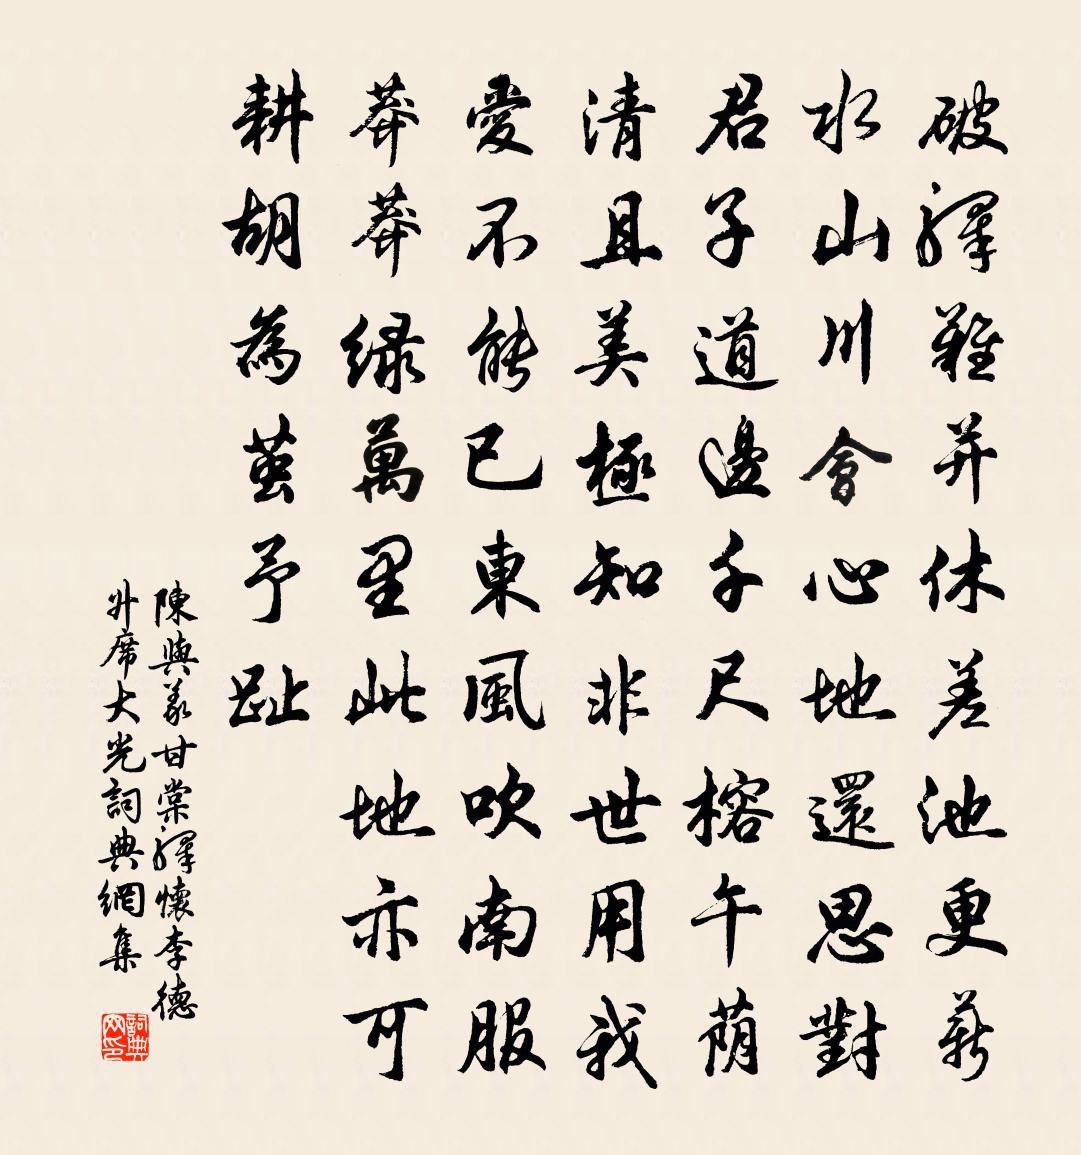 破驛難并休差池更薪
水山川會心地還思對
君子道邊千尺榕午荫
清且美極知非世用我
愛不能已東風吹南服
莽莽綠萬里此地亦可
耕胡為茧予趾
陳與義甘棠驛懷李德
升席大光詞典網集
詞典
网印